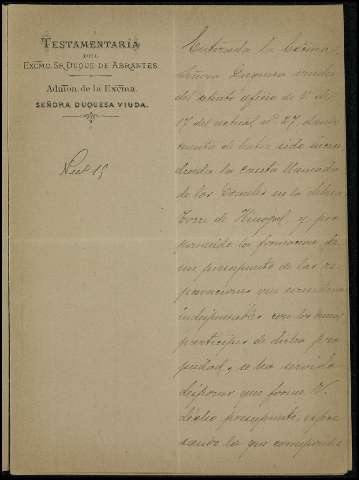 TESTAMENTARÍA
DEL
EXCMO. SR. DUQUE DE ABRANTES.
Admon. de la Excma.
SEÑORA DUQUESA VIUDA.
Enterada la Excma.
Señora Duquesa viuda
del atento oficio de V. del
17 del actual nº. 27, dando
cuenta de haber sido incen
diada la casita llamada
de los en la dehesa
Torre de y pro
poniendo la formacion de
un presupuesto de las re
paraciones que considera
indispensables con los demas
participes de dicha pro
piedad, se ha servido
disponer que forme V.
dicho presupuesto, expre
sando lo que corresponda